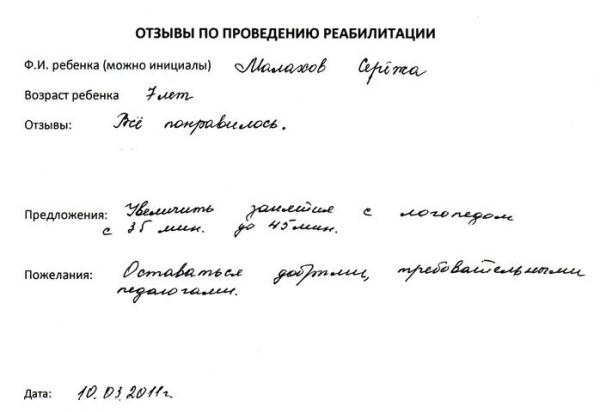 ОТЗЫВЫ ПО ПРОВЕДЕНИЮ РЕАБИЛИТАЦИИ
Ф.И. ребенка (можно инициалы) Малахов Серёжа
Возраст ребенка 7 лет
Отзывы: Всё понравилось.
Предложения: Увеличить занятия с логопедом
с 35 мин. до 45 мин.
Пожелания: Оставаться добрыми, требовательными
педагогами.
Дата: 10.03.2011г.